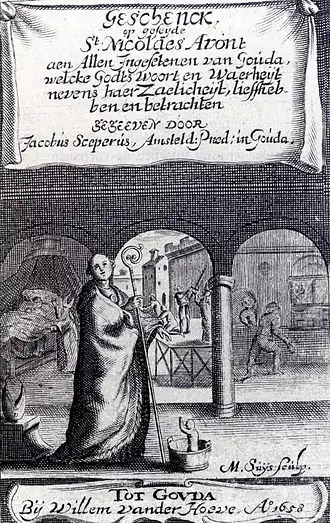 GESCHENCK,
op geseyde
St. NICOLAES Avont
aen Allen Ingesetenen van Gouda,
welcke Godts woort en Waerheyt
nevens haer Zaelicheyt, liefheb-
ben en betrachten
GEGEEVEN DOOR
Jacobus Sceperus, Amsteld: Pred: in Gouda.
M. Suÿs. sculp.
TOT GOVDA
Bij Willem vander Hoeve, Ao 1658